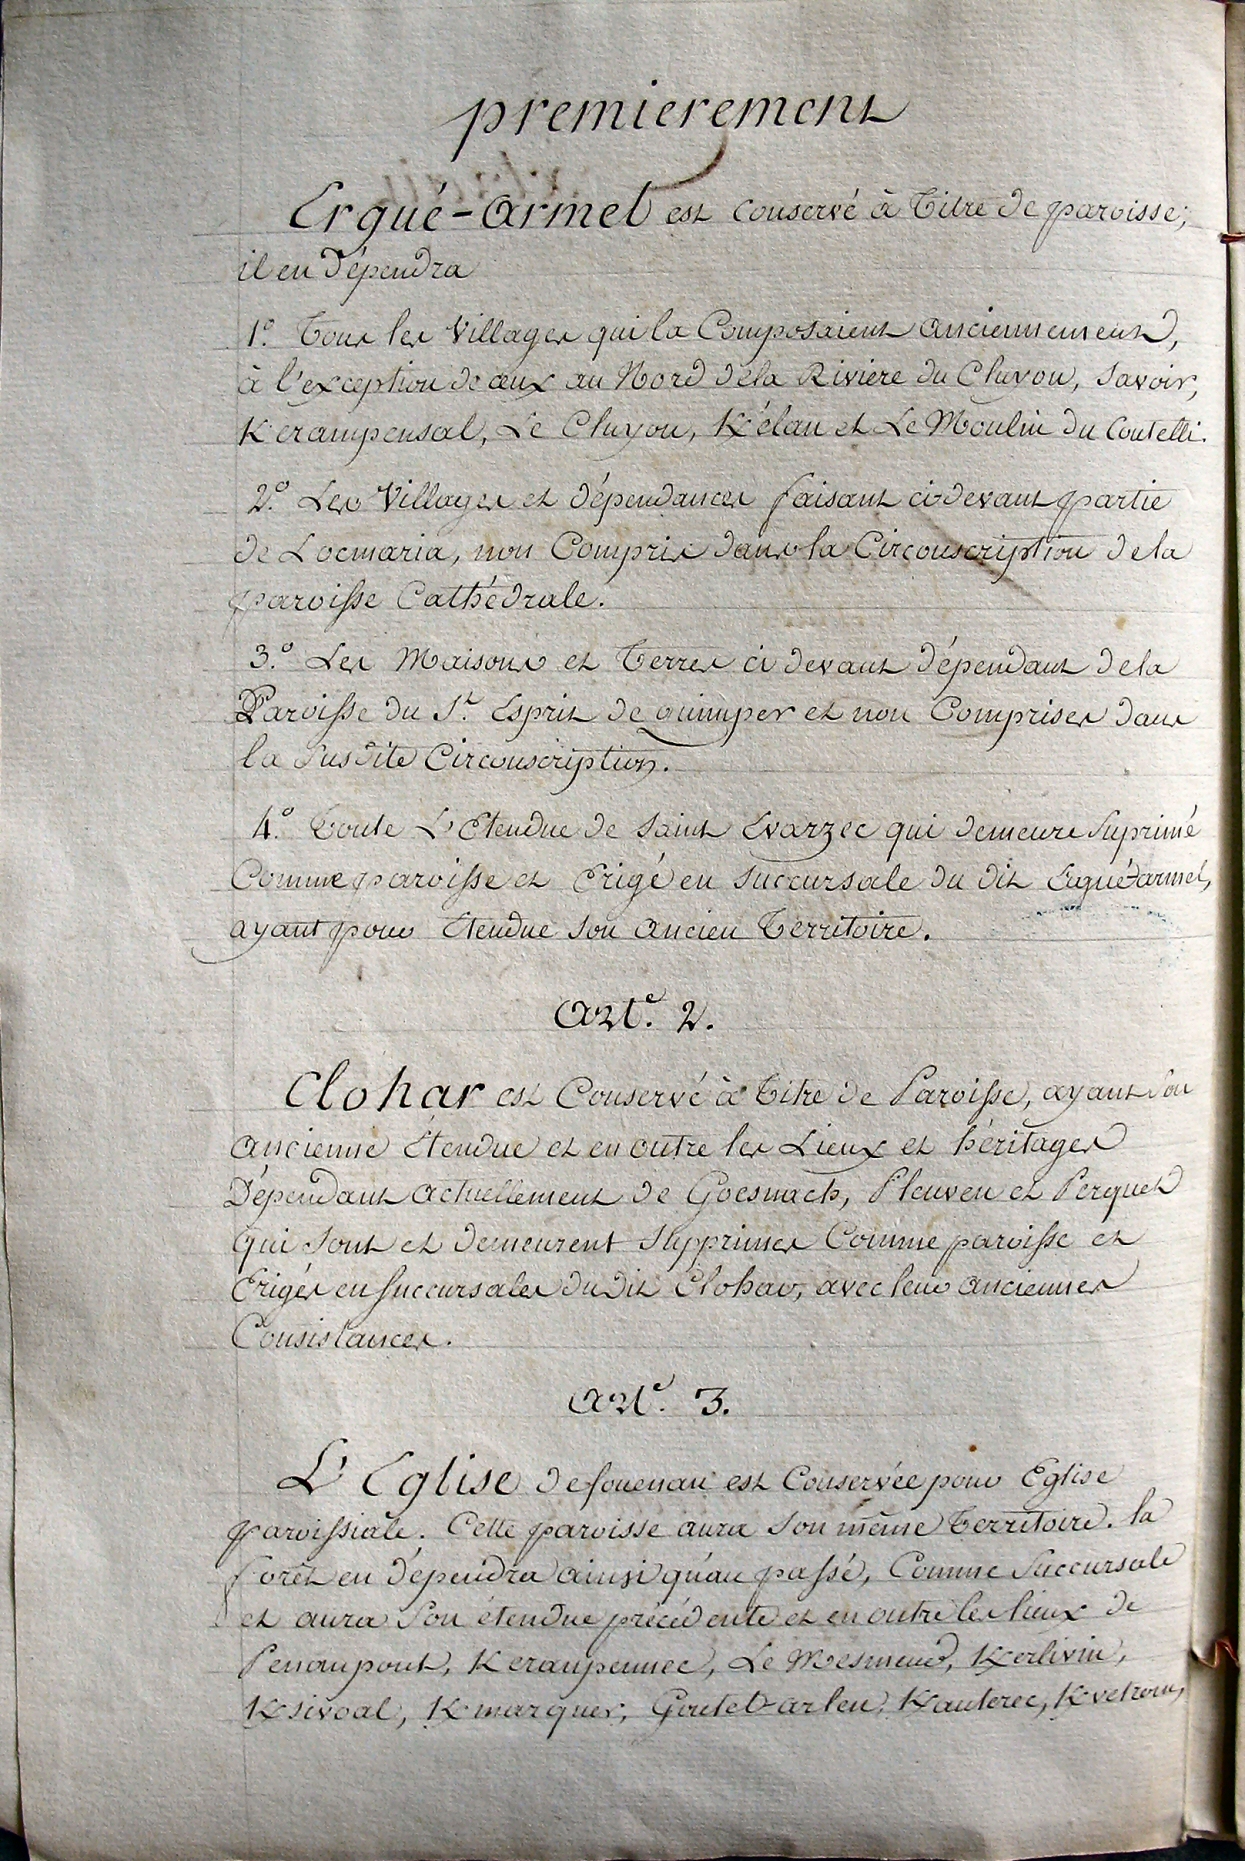 premierement
Ergué-Armel est Conservé à Titre de paroisse;
il en Dépendra
1.º Tous les Villages qui la Composaient anciennement,
à l'exception de ceux au Nord dela Riviere du Cluyou, Savoir,
Kerampensal, Le Cluyou, K'élan et Le Moulin du Coutelli.
2.º Les Villages et dépendances faisant ci-devant partie
de Locmaria, non Compris dans la Circonscription de la
paroisse Cathédrale.
3.º Les Maisons et Terres ci devant dépendant de la
Paroisse du St. Esprit de quimper et non Comprises dans
la Susdite Circonscription.
4.º Toute L'Etendue de Saint Evarzec qui demeure Suprimé
Comme paroisse et Erigé en succursale du dit Ergué-armel,
ayant pour Etendue son ancien Territoire.
Arte. 2.
Clohar est Conservé à Titre de Paroisse, ayant Son
ancienne Étendue et en outre les Lieux et héritages
Dépendant actuellement de Goesnach, Pleuven et Perguet
qui sont et demeurent supprimés Comme paroisse et
Erigés en Succursales Du Dit Clohar, avec leurs anciennes
Consistances.
Arte. 3.
L'Eglise de fouenan est Conservée pour Eglise
paroissiale. Cette paroisse aura Son même Territoire. la
forêt en dépendra ainsi qu'au passé, Comme Succursale
et aura Son étendue précédente et en outre les lieux de
Penanpont, Keranpennec, Le Mesmeud, Kerlivin,
Ksivoal, Kmarquer, Goulet-arlen, Kauterec,